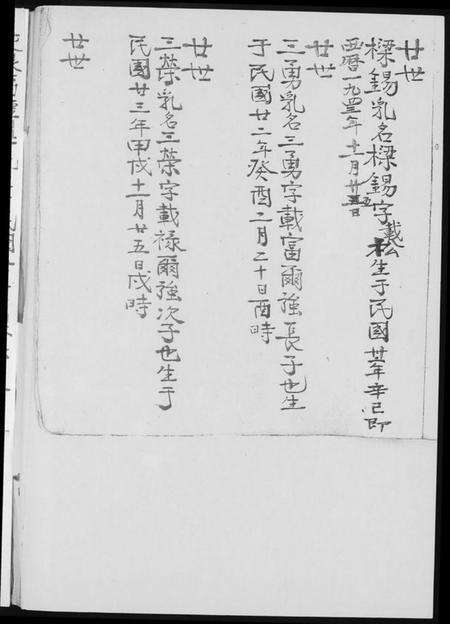 廿世
樑錫乳名樑錫字載松生于民國卅年辛巳即
西曆一九四一年十一月廿五日
廿世
三勇乳名三勇字載富爾強長子也生
于民國廿二年癸酉二月二十日酉時
廿世
三榮乳名三榮字載祿爾強次子也生于
民國廿三年甲戌十一月廿五日戌時
廿世